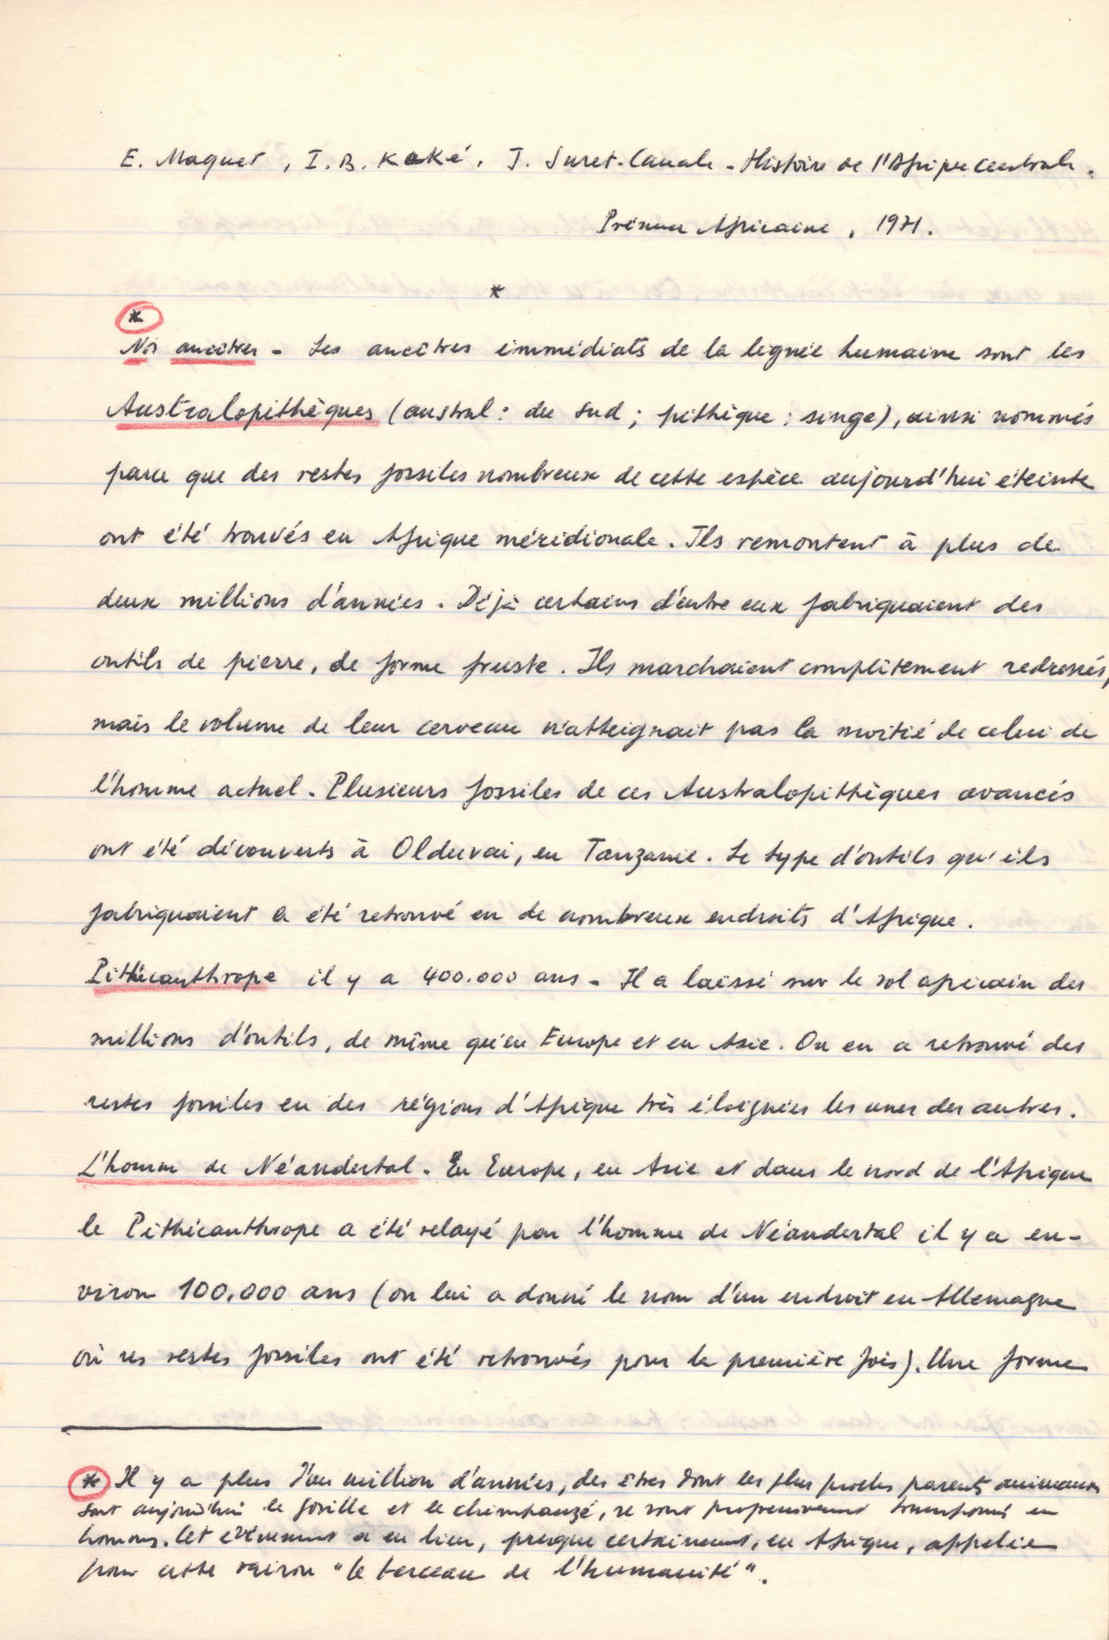 E. Maquet, I. B. Kaké, J. Suret-Canale - Histoire de l'Afrique Centrale.
Présence Africaine, 1971.
*
*
Nos ancêtres - Les ancêtres immédiats de la lignée humaine sont les
Australopithèques (austral : du Sud ; pithèque : singe), ainsi nommés
parce que des restes fossiles nombreux de cette espèce aujourd'hui éteinte
ont été trouvés en Afrique méridionale. Ils remontent à plus de
deux millions d'années. Déjà certains d'entre eux fabriquaient des
outils de pierre, de forme fruste. Ils marchaient complètement redressés,
mais le volume de leur cerveau n'atteignait pas la moitié de celui de
l'homme actuel. Plusieurs fossiles de ces Australopithèques avancés
ont été découverts à Olduvai, en Tanzanie. Le type d'outils qu'ils
fabriquaient a été retrouvé en de nombreux endroits d'Afrique.
Pithécanthrope il y a 400.000 ans - Il a laissé sur le sol africain des
millions d'outils, de même qu'en Europe et en Asie. On en a retrouvé des
restes fossiles en des régions d'Afrique très éloignées les unes des autres.
L'homme de Néandertal. En Europe, en Asie et dans le nord de l'Afrique
le Pithécanthrope a été relayé par l'homme de Néandertal il y a en-
viron 100.000 ans (on lui a donné le nom d'un endroit en Allemagne
où ses restes fossiles ont été retrouvés pour la première fois). Une forme
* Il y a plus d'un million d'années, des êtres dont les plus proches parents animaux
sont aujourd'hui le gorille et le chimpanzé, se sont progressivement transformés en
hommes. Cet événement a eu lieu, presque certainement, en Afrique, appelée
pour cette raison "le berceau de l'humanité".